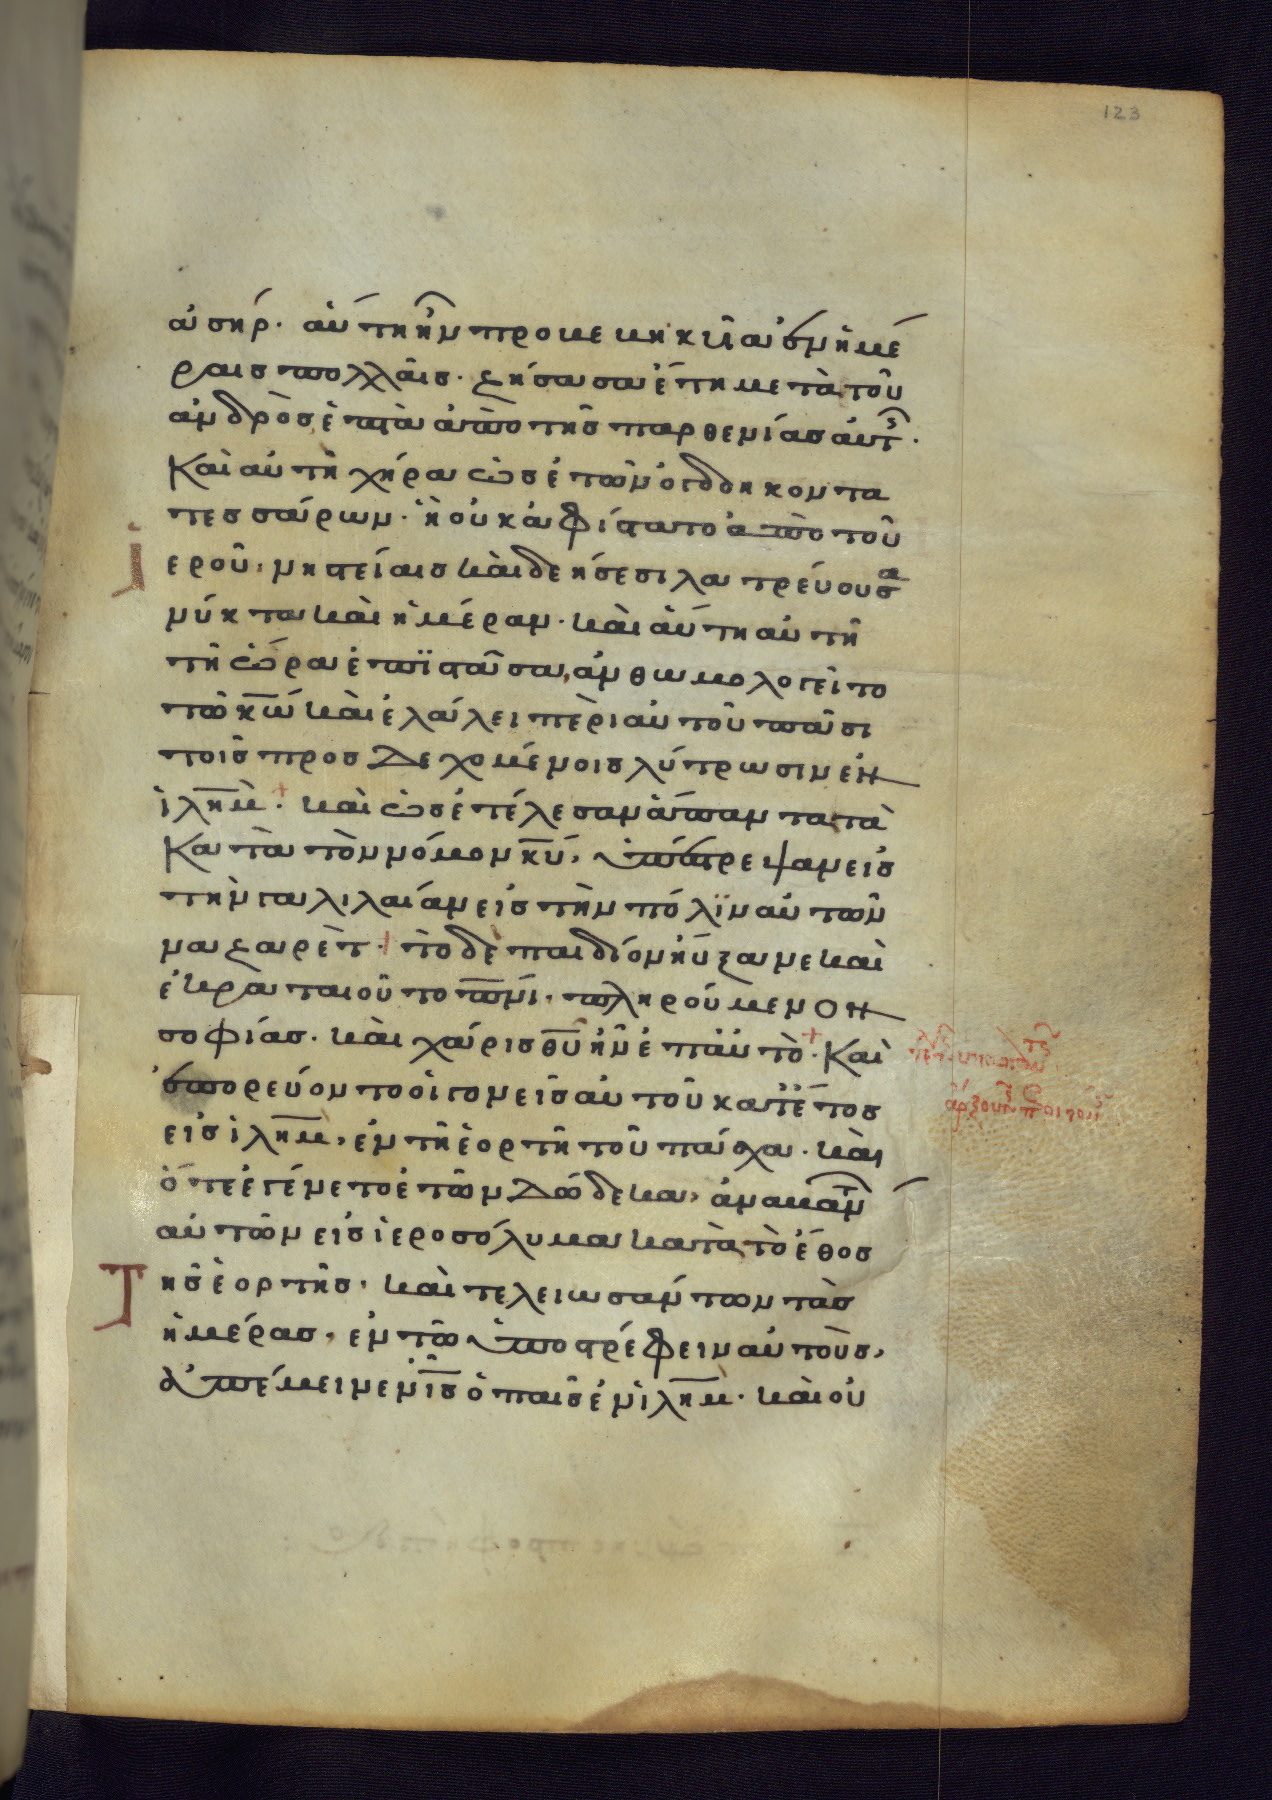 123
ἀσήρ· αὕτη ἦν προβεβηκυῖα ἐν ἡμέ
ραις πολλαῖς· ζήσασα ἔτη μετὰ τοῦ
ἀνδρὸς ἑπτὰ ἀπὸ τῆς παρθενίας αὐτ·
καὶ αὐτὴ χήρα ὡς ἐτῶν ὀγδοήκοντα
τεσσάρων· ἣ οὐκ ἀφίστατο ἀπὸ τοῦ
ἱεροῦ, νηστείαις καὶ δεήσεσι λατρεύουσα
νύκτα καὶ ἡμέραν· καὶ αὕτη αὐτῇ
τῇ ὥρα ἐπϊστᾶσα, ἀνθωμολογεῖτο
τῶ κ̅ω̅ καὶ ἐλάλει περὶ αὐτοῦ πᾶσι
τοῖς προσδεχομένοις λύτρωσιν ἐν
ἰλη̅μ̅· καὶ ὡς ἐτέλεσαν ἅπαντα τὰ
κατὰ τὸν νόμον κ̅υ̅, ὑπέστρεψαν εἰς
τὴν γαλιλαίαν εἰς τὴν πόλϊν αὐτῶν
ναζαρέτ· τὸ δὲ παιδίον ηὔξανε καὶ
ἐκραταιοῦτο π̅ν̅ι̅, πληρούμενον
σοφίας· καὶ χάρις θ̅υ̅ ἦν ἐπ αὐτὸ· Καὶ
ἐπορεύοντο οἱ γονεῖς αὐτοῦ κατ ἔτος
εἰς ἰλη̅μ̅, ἐν τῇ ἑορτῇ τοῦ πάσχα· καὶ
ὅτε ἐγένετο ἐτῶν δώδεκα, ἀναβάντ
αὐτῶν εἰς ἱεροσόλυμα κατὰ τὸ ἔθος
τῆς ἑορτῆς· καὶ τελειωσάντων τὰς
ἡμέρας, ἐν τῶ ὑποστρέφειν αὐτοὺς,
ὑπέμεινεν ι̅ς̅ ὁ παῖς ἐν ἰλη̅μ̅· καὶ οὐ